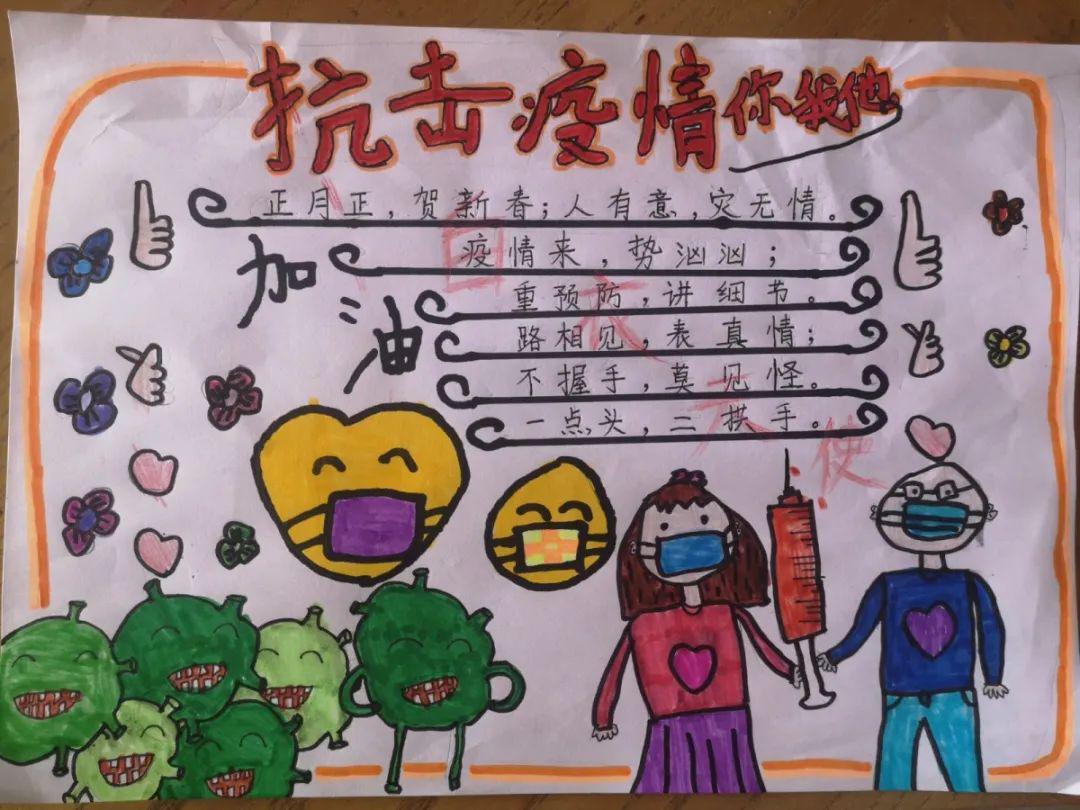 抗击疫情你我他
正月正，贺新春；人有意，灾无情。
疫情来，势汹汹；
重预防，讲细节。
路相见，表真情；
不握手，莫见怪。
一点头，二拱手。
加油